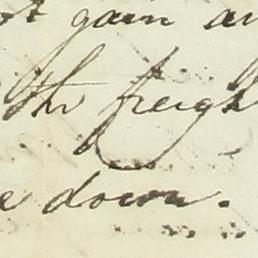 ot gain an
th freigh
e down.